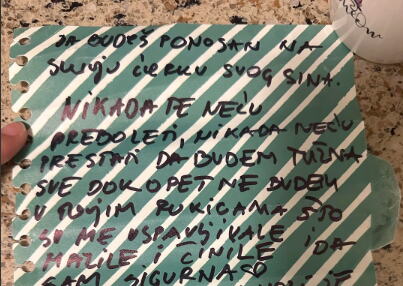 DA BUDEŠ PONOSAN NA
SVOJU ĆERKU SVOG SINA.
NIKADA TE NEĆU
PREBOLETI, NIKADA NEĆU
PRESTATI DA BUDEM TUŽNA
SVE DOK OPET NE BUDEM
U TVOJIM RUKICAMA ŠTO
SU ME USPAVLJIVALE I
MAZILE I ČINILE DA
SAM SIGURNA